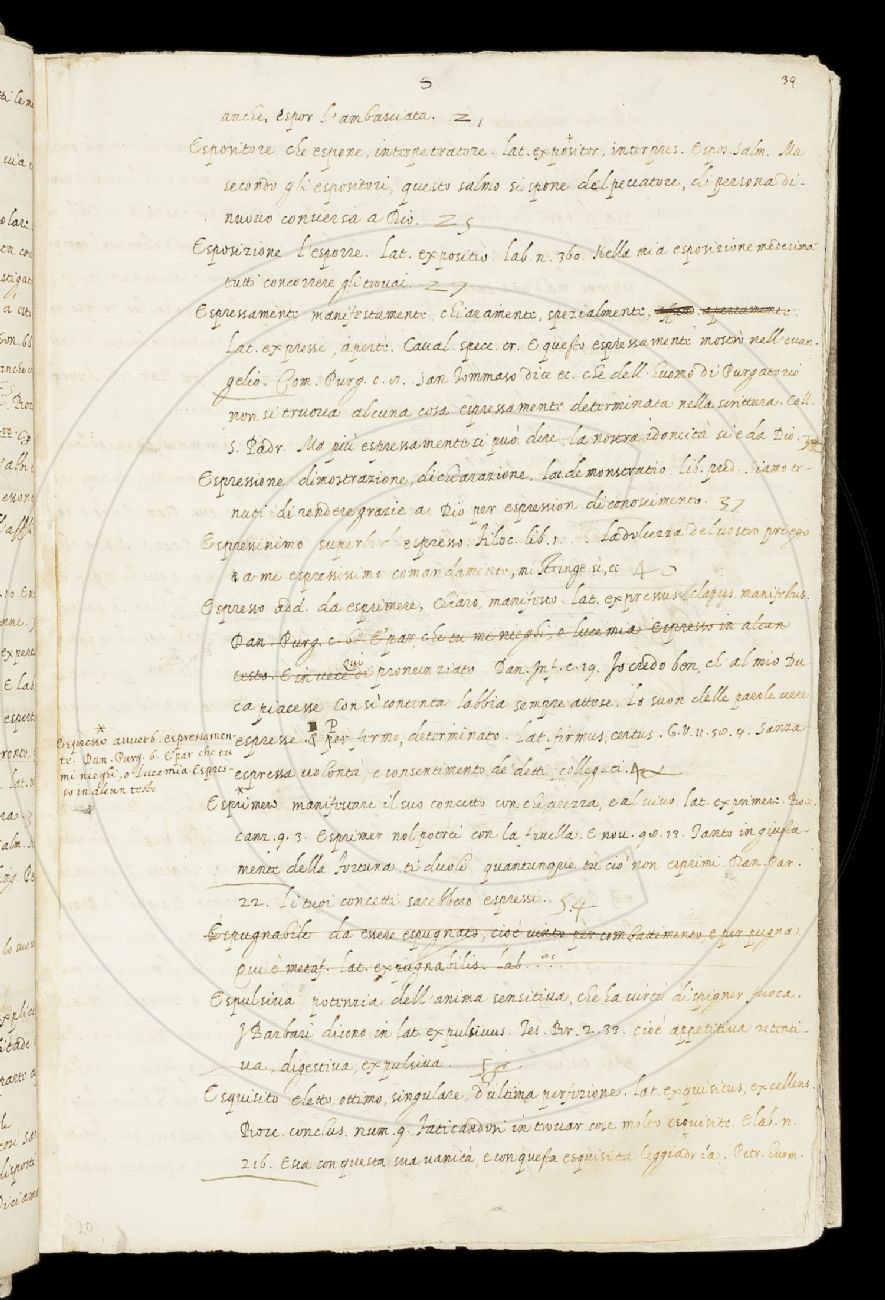 S
39
anche, espor l'ambasciata. 21
Espositore che espone, interpetratore. lat. expositor, interpres. Espos. Salm. Ma
secondo gli espositori, questo salmo si spone del peccatore, ch persona di-
nuovo conversa a Dio. 25
Esposizione l'esporre. Lat. expositio. lab. n. 360. Nella mia esposizione medesima
tutti concorrere gli trovai. 27
Espressamente manifestamente, chiaramente, spezialmente, apertamente.
Lat. expresse, aperte. Caval. specc. cr. E questo espressamente mostrò nell'evan-
gelio. Com. Purg. c. San Tommaso dice ec. che dell'huomo di Purgatorio
non si truova alcuna cosa espressamente determinata nella scrittura. Coll.
S. Padr. Ma più espressamente si può dire, la nostra idoneità si è da Dio.
Espressione dimostrazione, dichiarazione. lat. demonstratio. lib. pred. Siamo te-
nuti di rendere grazie a Dio per espression di conoscimento. 37
Espressissimo superl. d' espresso. Filoc. lib. 1. La dolcezza del vostro priego
è a me espressissimo comandamento, mi stringe sì, ec 40
Espresso add. da esprimere, chiaro, manifesto. lat. expressus, manifestus.
Dan. Purg. c. 6. E' par, che tu mi nieghi, o luce mia Espresso in alcun
testo. E in vece di
Qui
pronunziato. Dan. Inf. c. 19. Io credo ben, ch' al mio Du
ca piacesse Con sì contenta labbia sempre attese. Lo suon delle parole vere
espresse. & Per fermo, determinato. Lat. firmus, certus. G. V. 11. Sanza
espressa volontà e consentimento de' detti collegati.
Esprimere manifestare il suo concetto con chiarezza, e al vivo. lat. exprimere. Boc.
canz. 9. 3. Esprimer nol potrei con la favella. E nov. 98. 13. Tanto ingiusta-
mente della fortuna ti duoli, quantunque tu ciò non esprimi. Dan. Par.
22. Li tuoi concetti sarebbero espressi. 54
Espugnabile da essere espugnato, cioè vinto per combattimento e per pugna
Qui è metaf. lat. expugnabilis. Lab.
Espulsiva potenzia dell'anima sensitiva, che ha virtù di spigner fuora.
I Barbari dicono in lat. expulsivus. Tes. Br. 2. 33. cioè appetitiva ritenti-
va, digestiva, expulsiva.
Esquisito eletto, ottimo, singulare, d'ultima perfezione. lat. exquisitus, excellens.
Bocc. conclus. num. 9. Faticandosi in trovar cose molto esquisite. E lab. n.
216. Essa con questa sua vanità, e con questa esquisita leggiadria. Petr. huom.
* Espresso avverb. espressamen-
te. Dan. Purg. 6. E' par che tu
mi nieghi, o luce mia Espres-
so in alcun testo
20